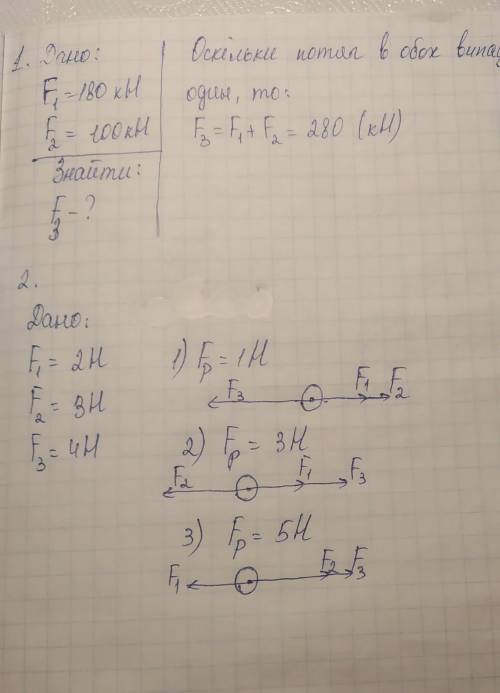 1. Дано:
F₁ = 180 кН
F₂ = 100 кН
Знайти:
F₃ - ?
Оскільки потяг в обох
один, то:
F₃ = F₁ + F₂ = 280 (кН)
2.
Дано:
F₁ = 2Н
F₂ = 3Н
F₃ = 4Н
1) Fp = 1Н
F₃ F₁ F₂
2) Fp = 3Н
F₂ F₁ F₃
3) Fp = 5Н
F₁ F₂ F₃